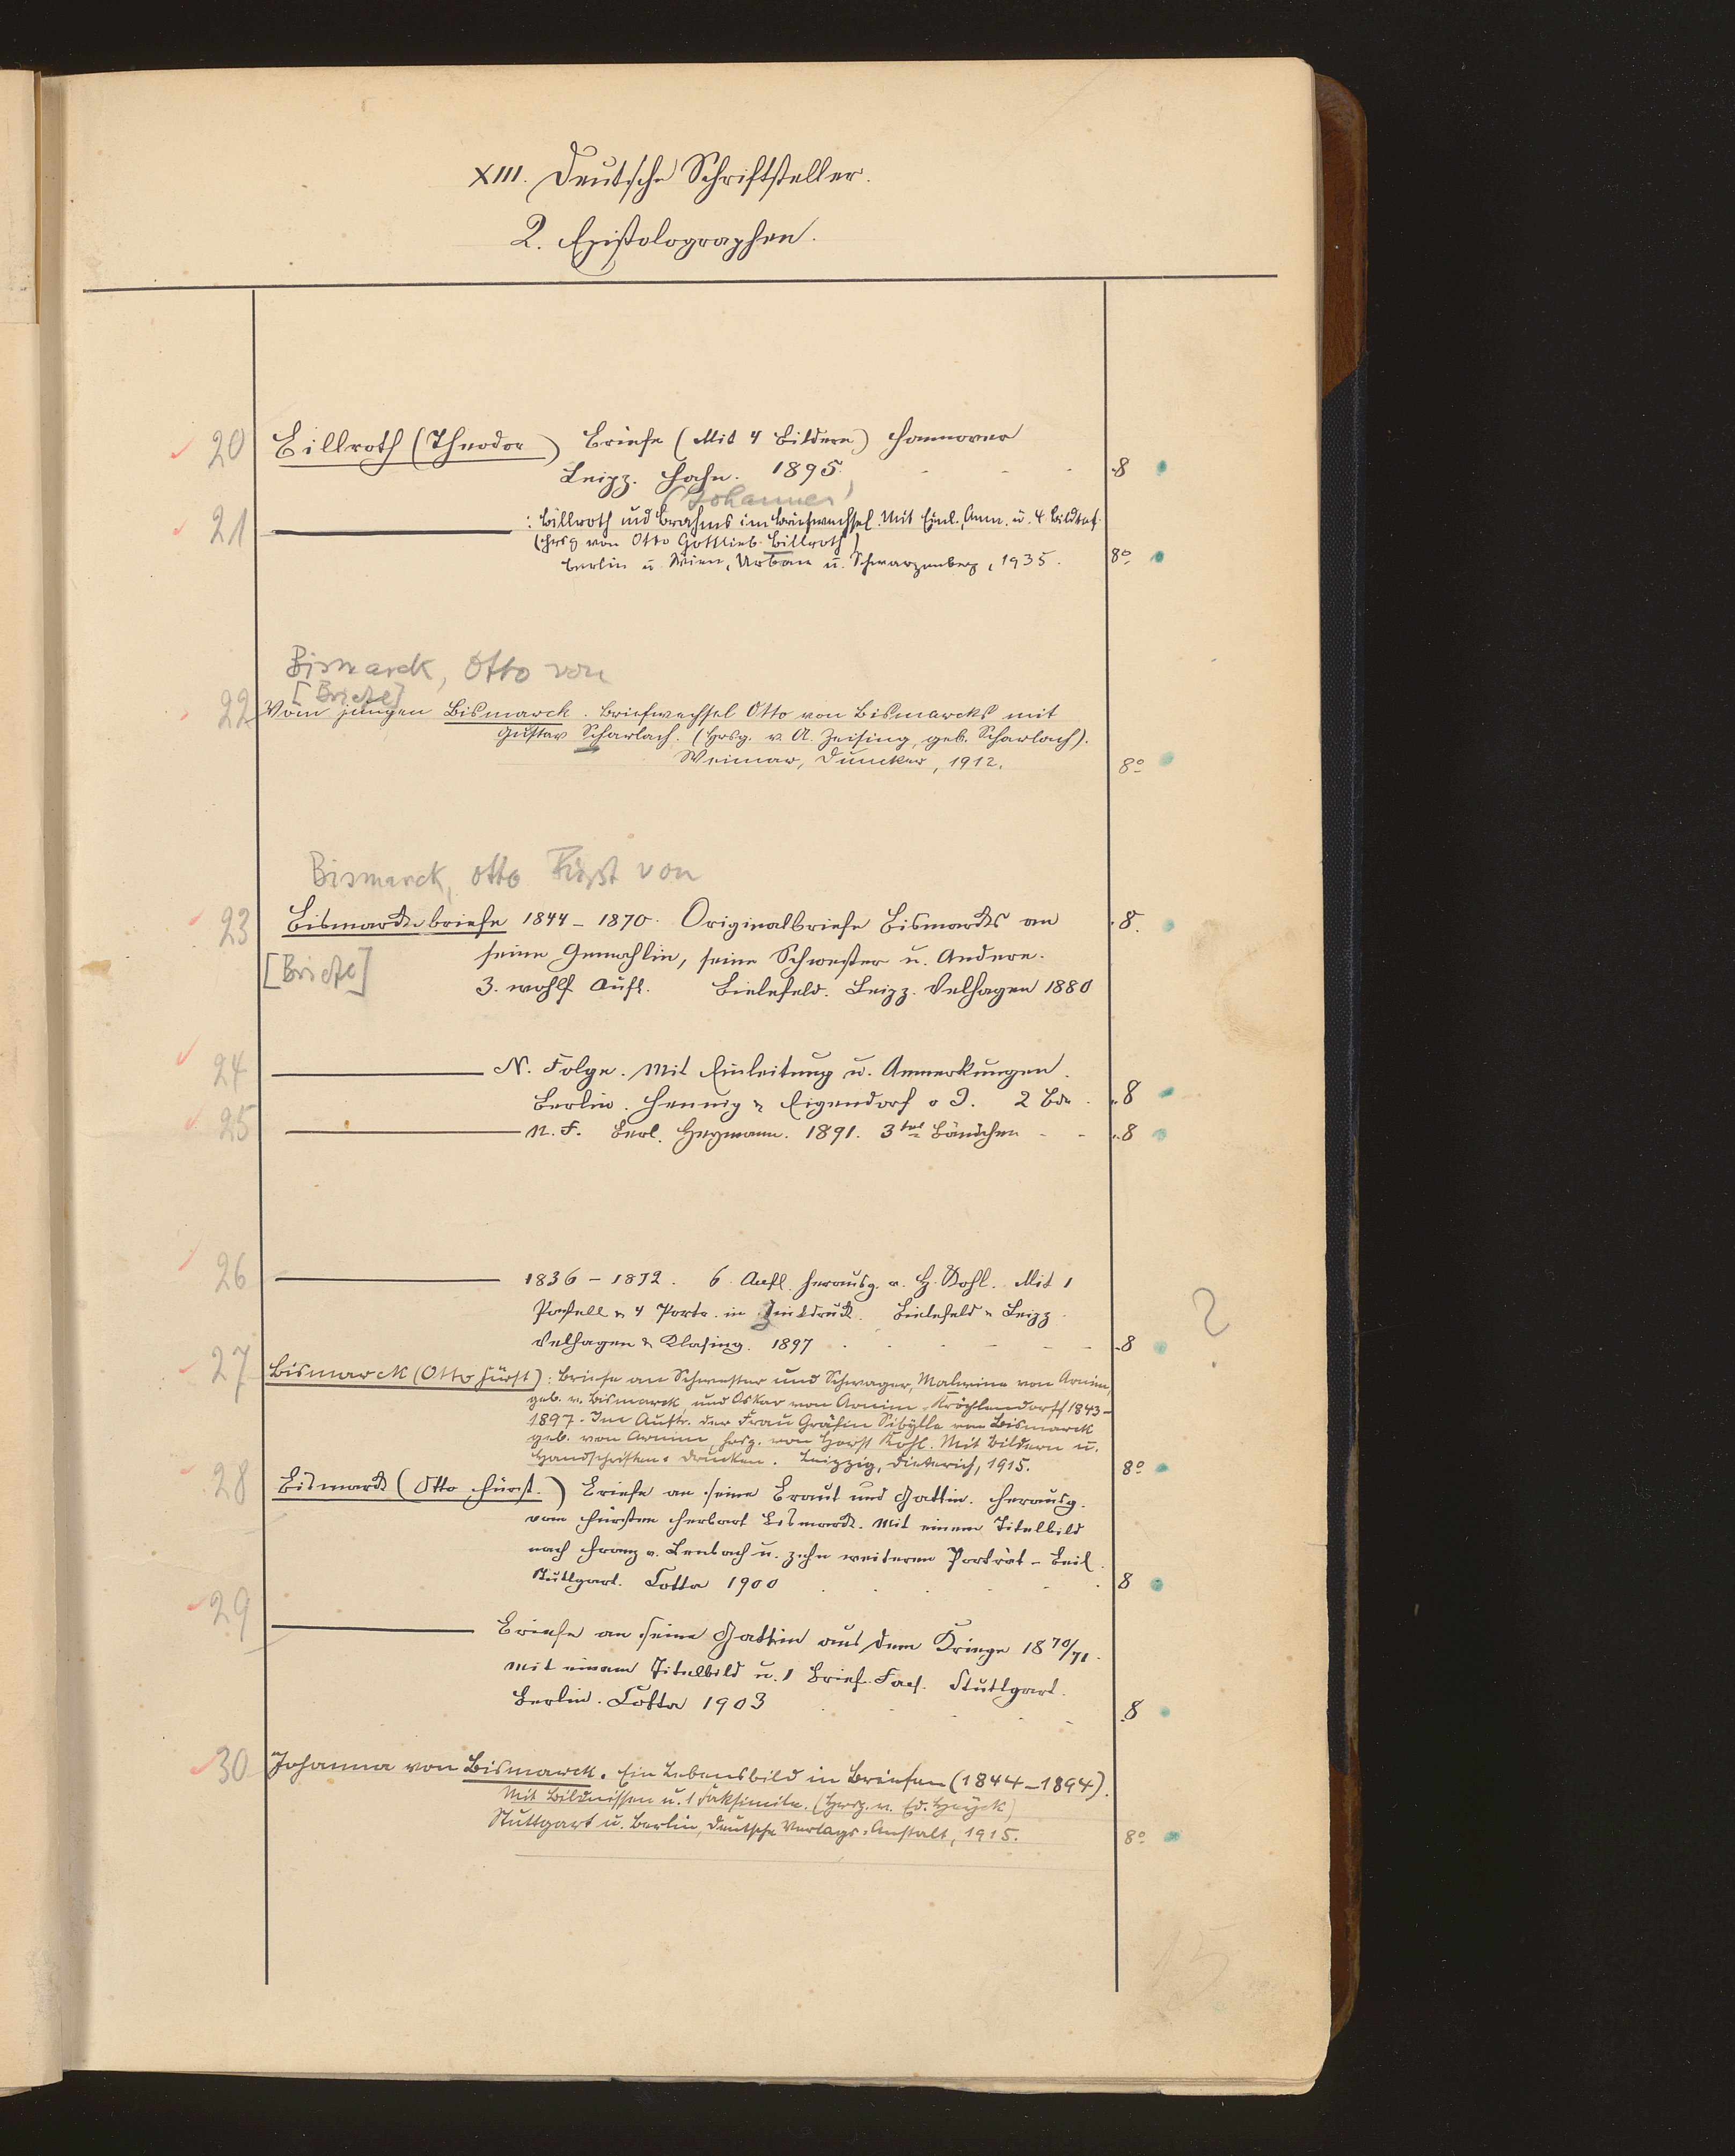 XIII. Deutsche Schriftsteller.
2. Epistolographen.
20 Billroth (Theodor) Briefe (Mit 4 Bildern) Hannover
Leipz. Hahn. 1895. 8
(Johannes)
21 : Billroth und Brahms im Briefwechsel. Mit Einl., Anm. u. 4 Bildtaf.
(hrsg von Otto Gottlieb-Billroth)
Berlin u. Wien, Urban u. Schwarzenberg, 1935. 8o
Bismarck, Otto von
[Briefe]
22 Vom jungen Bismarck. Briefwechsel Otto von Bismarcks mit
Gustav Scharlach. (Hrsg. v. A. Zeising, geb. Scharlach).
Weimar, Duncker, 1912. 8o
Bismarck, Otto Fürst von
23 Bismarckbriefe 1844–1870. Originalbriefe Bismarcks an 8.
seine Gemahlin, seine Schwester u. Andere.
[Briefe]
3. wohlf. Aufl. Bielefeld. Leipz. Velhagen 1880
24 N. Folge. Mit Einleitung u. Anmerkungen.
Berlin. Hennig & Eigendorf o J. 2 Bde. 8
25 N. F. Berl. Heymann. 1891. 3tes Bändchen 8
26 1836–1872. 6. Aufl. herausg. v. H. Kohl. Mit 1
Pastell & 4 Portr. in Zinkdruck. Bielefeld & Leipz.
Velhagen & Klasing. 1897 8
?
27 Bismarck (Otto Fürst): Briefe an Schwester und Schwager, Malwine von Arnim,
geb. v. Bismarck, und Oskar von Arnim-Kröchlendorff 1843–
1897. Im Auftr. der Frau Gräfin Sibylle von Bismarck
geb. von Arnim, hrsg. von Horst Kohl. Mit Bildern u.
Handschriften-drucken. Leipzig, Dieterich, 1915. 8o
28 Bismarck (Otto Fürst.) Briefe an seine Braut und Gattin. Herausg.
vom Fürsten Herbert Bismarck. Mit einem Titelbild
nach Franz v. Lenbach u. zehn weiteren Porträt-Beil.
Stuttgart. Cotta 1900 8
29 Briefe an seine Gattin aus dem Kriege 1870/71.
Mit einem Titelbild u. 1 Brief-Facs. Stuttgart.
Berlin. Cotta 1903 8
30 Johanna von Bismarck. Ein Lebensbild in Briefen (1844–1894).
Mit Bildnissen u. 1 Faksimile. (Hrsg. v. Ed. Heyck)
Stuttgart u. Berlin, Deutsche Verlags-Anstalt, 1915. 8o
15